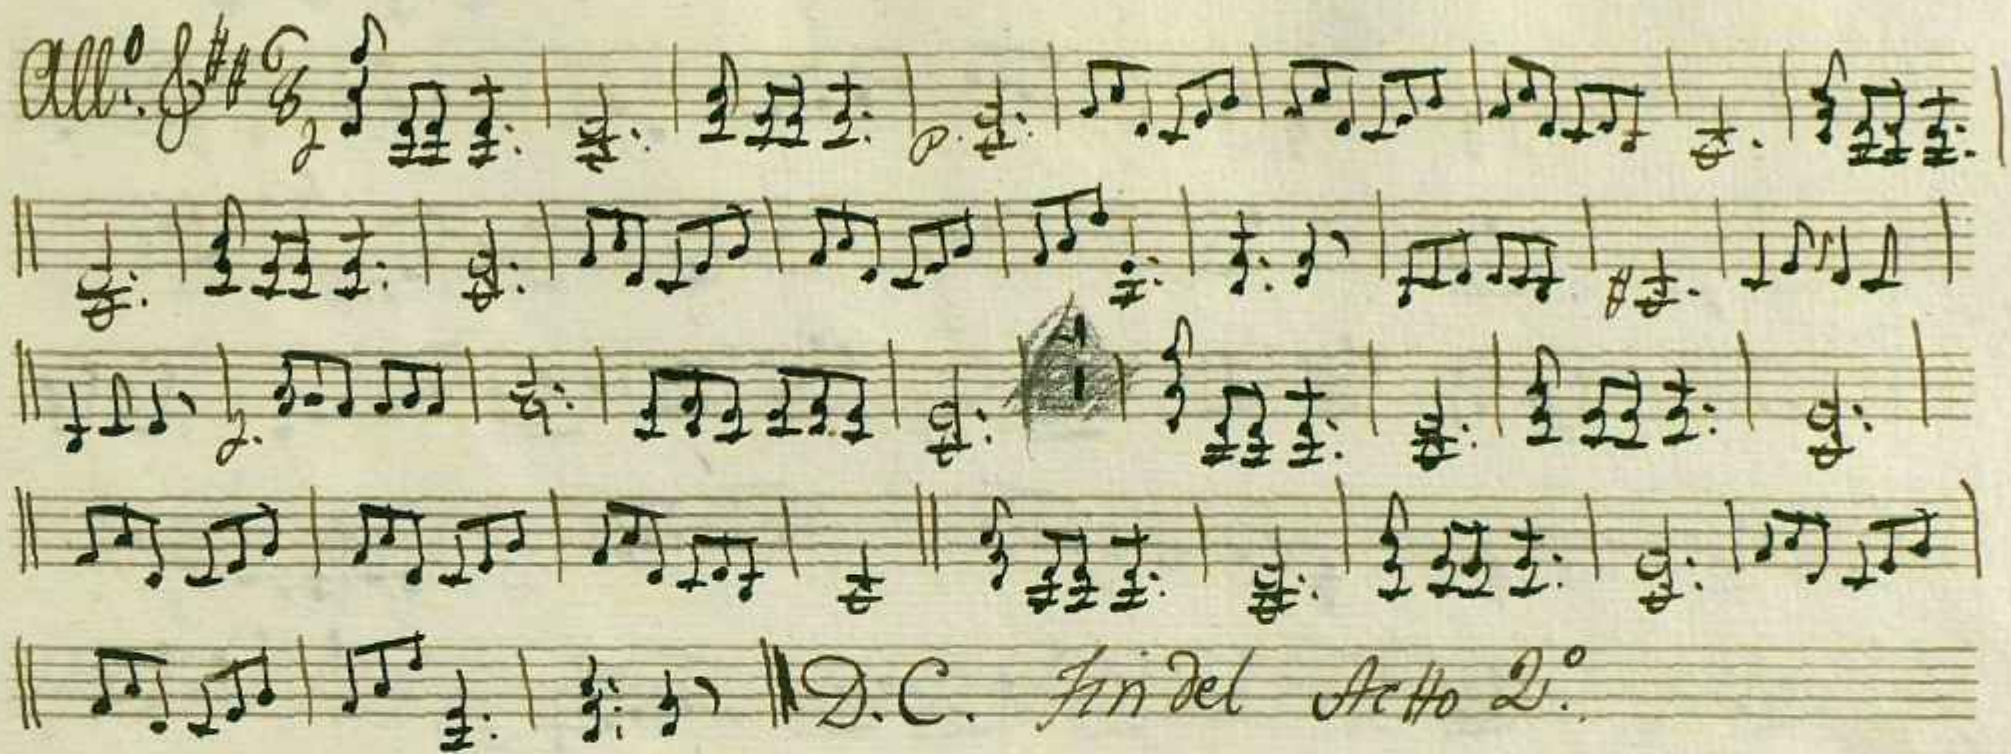 All.º 6 8
p.
D.C. Fin del Actto 2.º